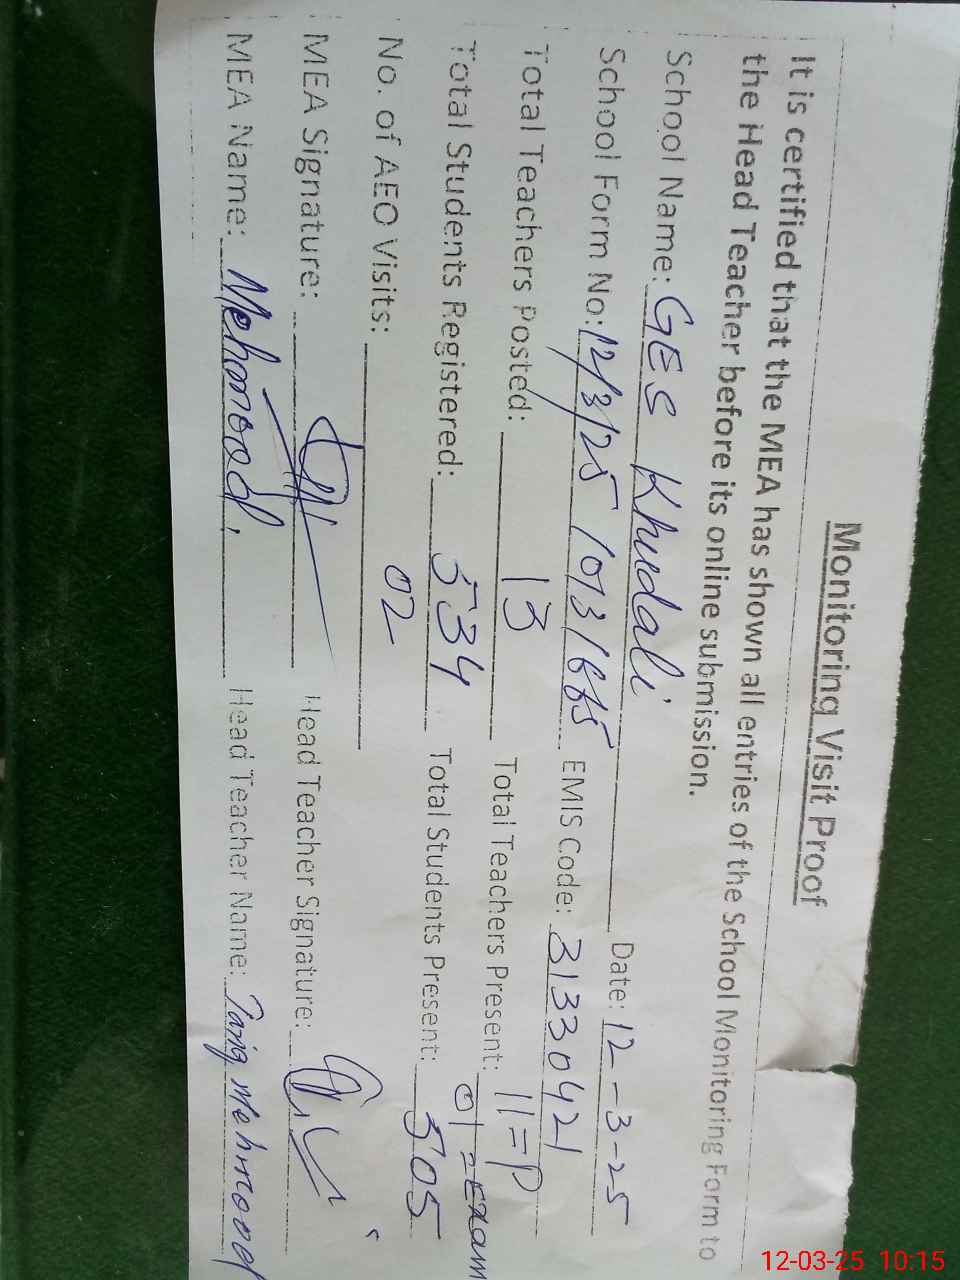 Monitoring Visit Proof
It is certified that the MEA has shown all entries of the School Monitoring Form to
the Head Teacher before its online submission.
School Name: GES Khudali Date: 12-3-25
School Form No: 12/3/25 10731665 EMIS Code: 31330421
Total Teachers Posted: 13 Total Teachers Present: 11=P
01=Exam
Total Students Registered: 534 Total Students Present: 505
No. of AEO Visits: 02
MEA Signature: Head Teacher Signature:
MEA Name: Mehmood Head Teacher Name: Tariq Mehmood
12-03-25 10:15